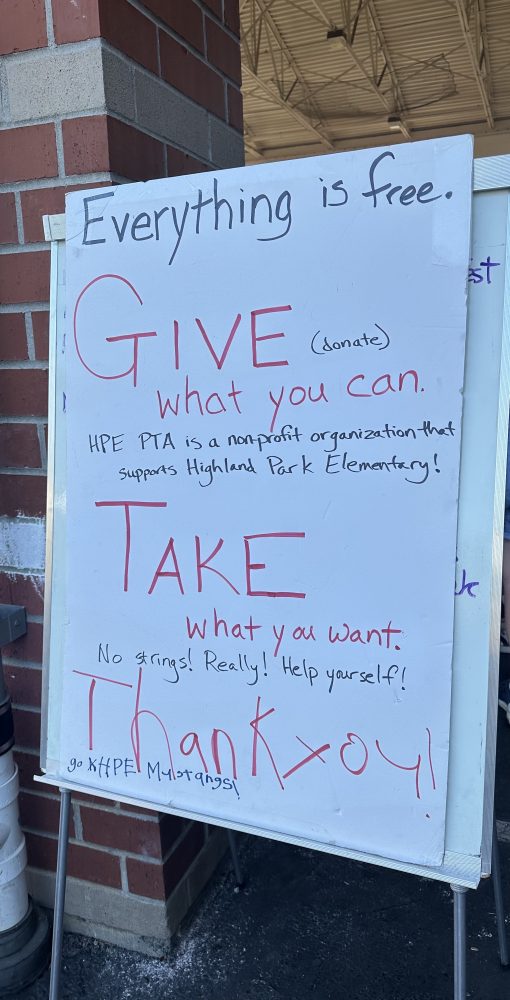 Everything is free.
GIVE (donate)
what you can.
HPE PTA is a non-profit organization that
supports Highland Park Elementary!
TAKE
what you want.
No strings! Really! Help yourself!
Thank xoy!
go KHPE Mustangs!
st